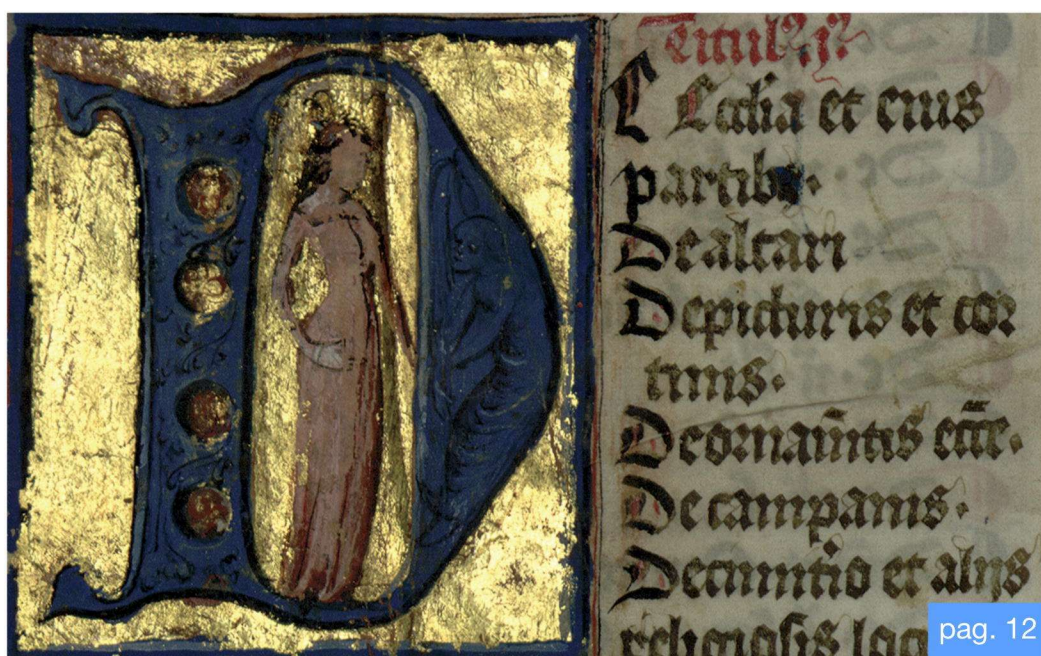 Titulꝰ .jꝰ
Ecclia et eius
partibꝰ.
De altari
De picturis et cor
tinis.
De ornam̄tis ecc̄e.
De campanis.
De cimit̄io et alijs
religiosis loc
pag. 12